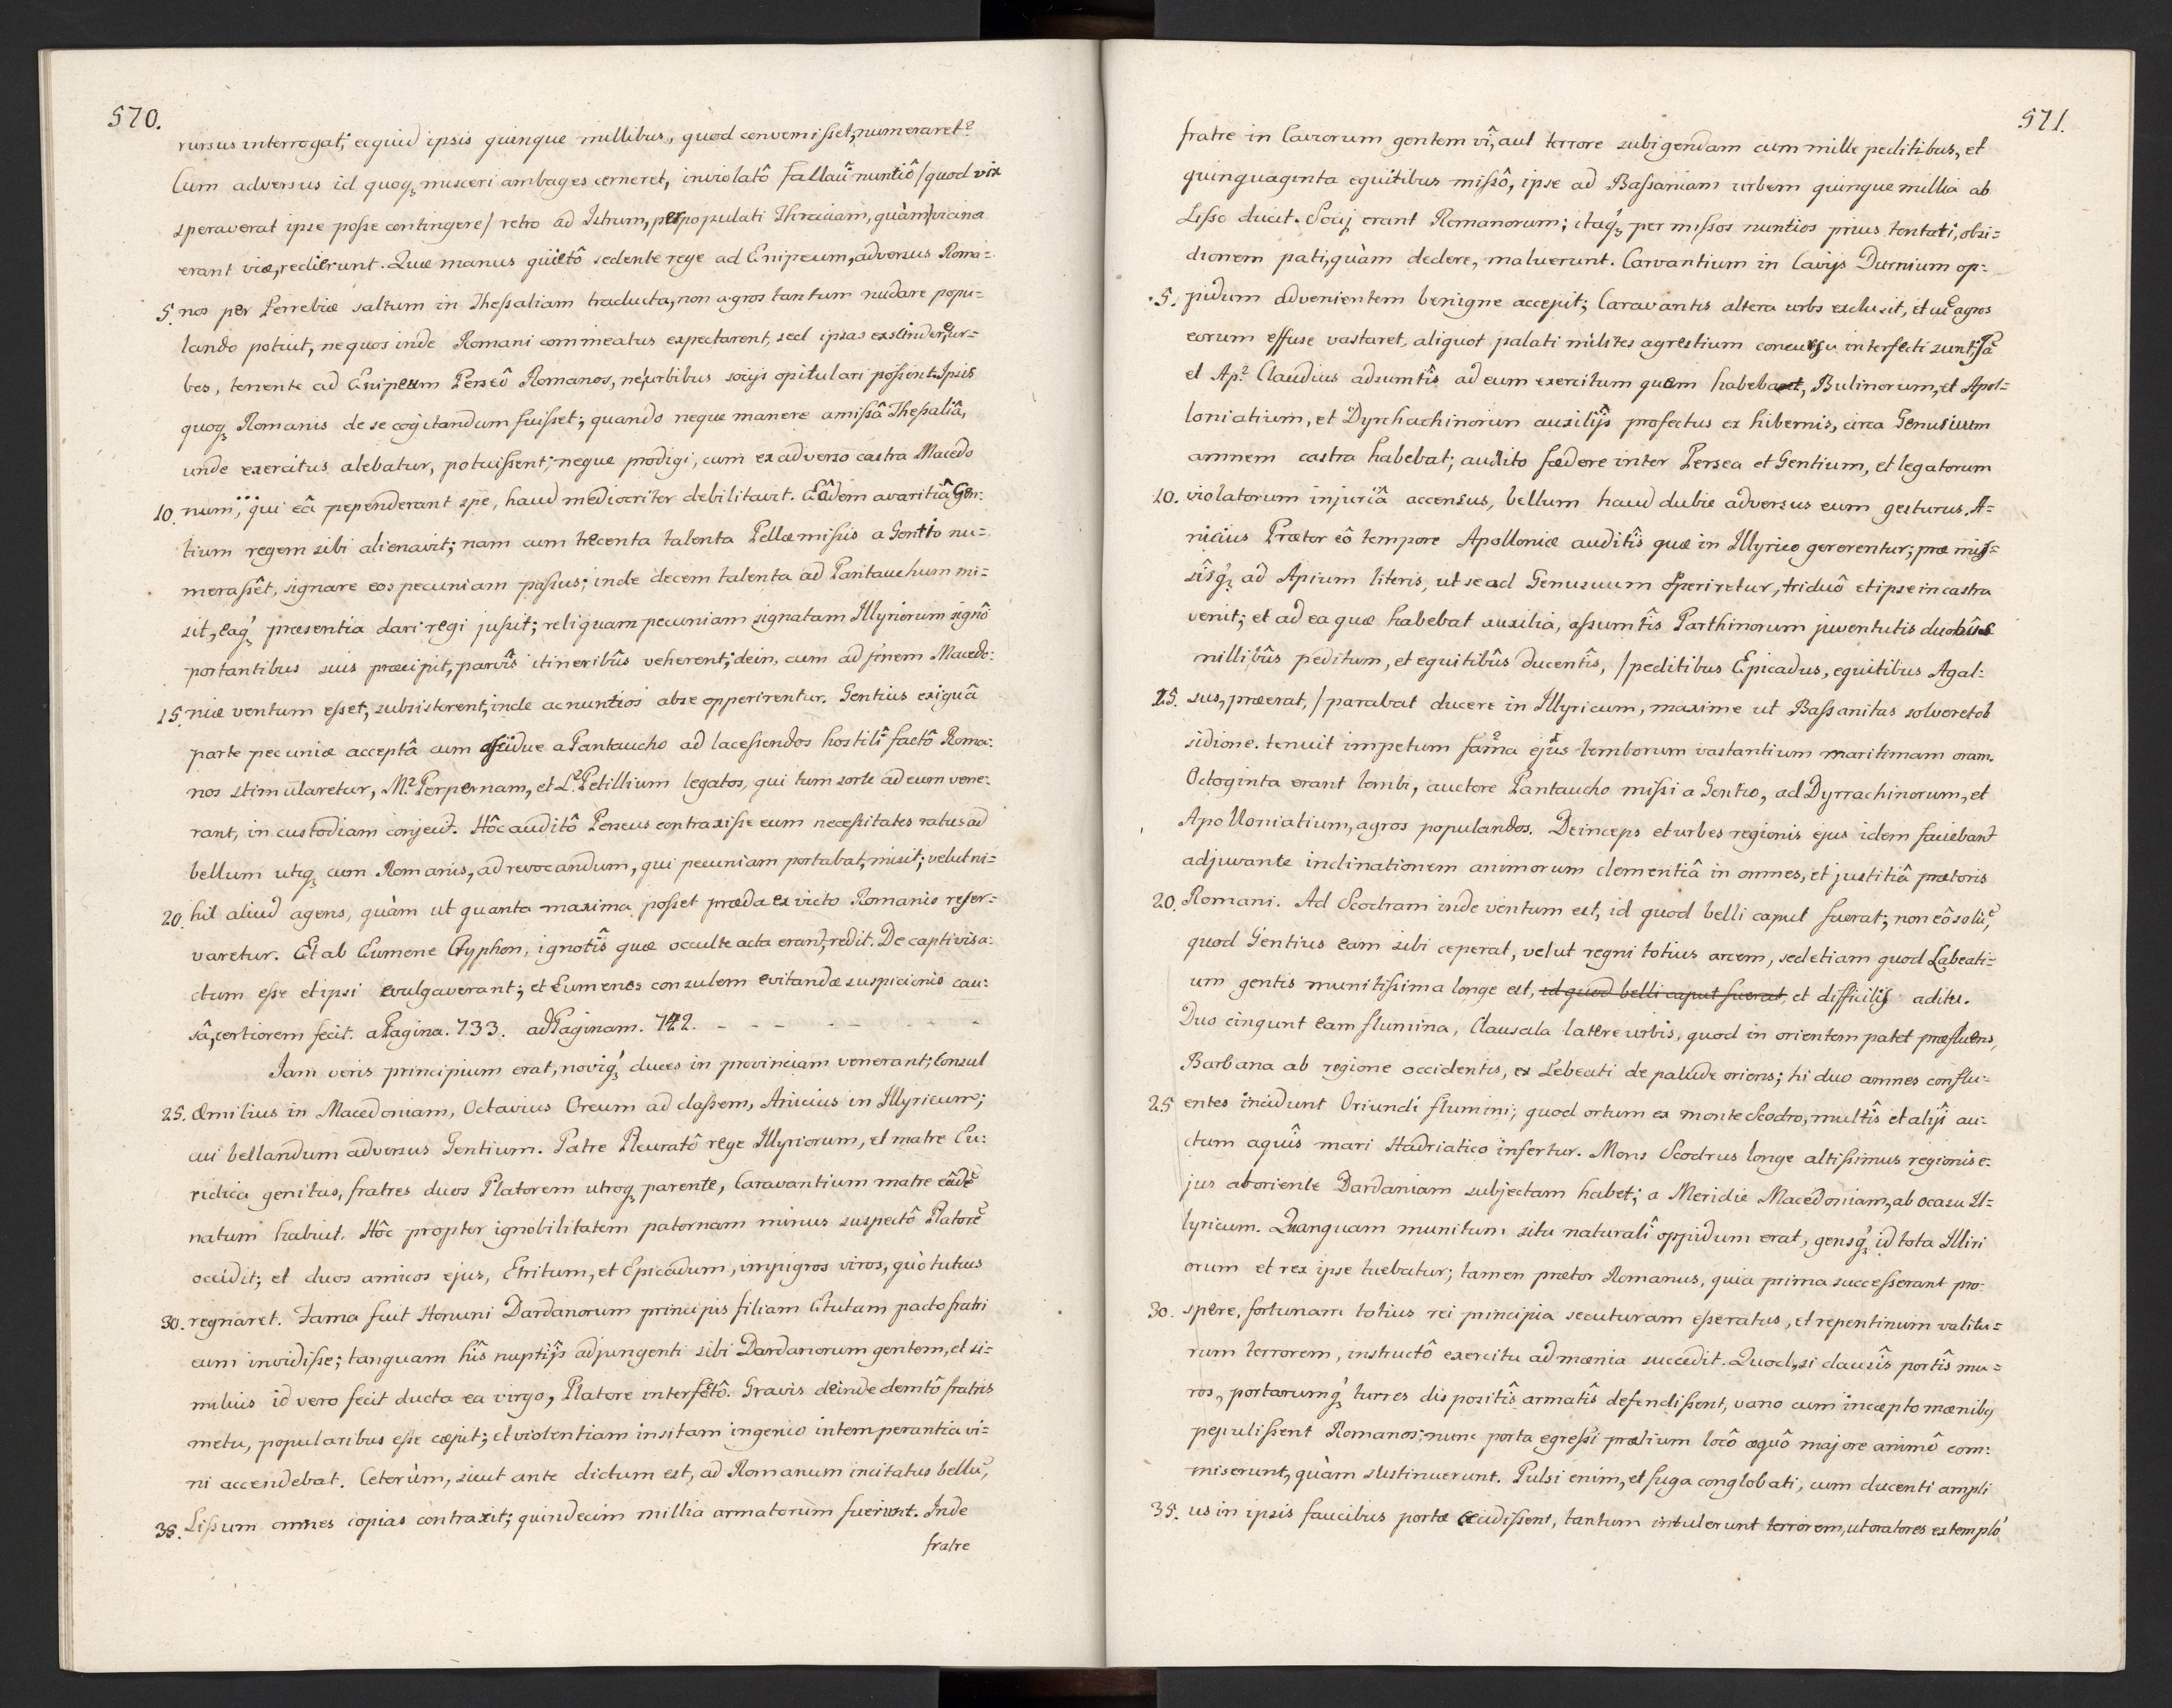 570.
rursus interrogat; ecquid ipsis quinque millibus, quod convenisset, numeraret?
Cum adversus id quoq́ȝ misceri ambages cerneret, inviolatô fallaci nuntiô /quod vix
speraverat ipse posse contingere/ retro ad Istrum, perpopulati Thraciam, quàm vicina
erant viæ, redierunt. Quæ manus quietô sedente rege ad Enipeum, adversus Roma=
5. nos per Perrebiæ saltum in Thessaliam traducta, non agros tantum nudare popu=
lando potiut, ne quos inde Romani commeatus expectarent, sed ipsas exscindere, ur=
bes, tenente ad Enipeum Perseô Romanos, ne urbibus socijs opitulari possent. Ipsis
quoqȝ Romanis de se cogitandum fuisset; quando neque manere amissâ Thessaliâ,
unde exercitus alebatur, potuissent; neque prodigi, cum ex adverso castra Macedo
10. num; qui eâ pependerant spe, haud mediocriter debilitavit. Eâdem avaritiâ Gen:
tium regem sibi alienavit; nam cum trecenta talenta Pellæ missis a Gentio nu=
merassêt, signare eos pecuniam passus; inde decem talenta ad Pantauchum mi=
sit, eaqȝ́ præsentia dari regi jussit; reliquam pecuniam signatam Illyriorum signô
portantibus suis præcipit, parvîs itineribûs veherent; dein, cum ad finem Macedo:
15. niæ ventum esset, subsisterent, inde ac nuntios abse opperirentur. Gentius exiguâ
parte pecuniæ acceptâ cum assidue a Pantaucho ad lacessendos hostilî factô Roma:
nos stimularetur, M. Perpernam, et L. Petillium legatos, qui tum sorte ad eum vene:
rant, in custodiam conjecit. Hôc auditô Perseus contraxisse eum necessitates ratus ad
bellum utiqȝ cum Romanis, ad revocandum, qui pecuniam portabat, misit; velut ni=
20. hil aliud agens, quàm ut quanta maxima posset præda ex victo Romanis reser=
varetur. Et ab Eumene Cryphon, ignotîs quæ occulte acta erant, redit. De captivis a:
ctum esse et ipsi evulgaverant; et Eumenes consulem evitandæ suspicionis cau:
sâ, certiorem fecit. a Pagina. 733. ad Paginam. 742. - - - - - -
Jam veris principium erat, noviqȝ́ duces in provinciam venerant; Consul
25. Æmilius in Macedoniam, Octavius Oreum ad classem, Anicius in Illyricum;
cui bellandum adversus Gentium. Patre Pleuratô rege Illyriorum, et matre Eu:
ridica genitus, fratres duos Platorem utroqȝ parente, Caravantium matre eâdē
natum habuit. Hôc propter ignobilitatem paternam minus suspectô Platorē
occidit; et duos amicos ejus, Etritum, et Epicadum, impigros viros, quò tutius
30. regnaret. Fama fuit Honuni Dardanorum principis filiam Etutam pacto fratri
eum invidisse; tanquam hîs nuptijs adjungenti sibi Dardanorum gentem, et si=
milius id vero fecit ducta ea virgo, Platore interfectô. Gravis deinde demtô fratris
metu, popularibus esse cœpit; et violentiam insitam ingenio intemperantia vi=
ni accendebat. Ceterùm, sicut ante dictum est, ad Romanum incitatus bellū,
35. Lissum omnes copias contraxit; quindecim millia armatorum fuerunt. Inde
fratre
571.
fratre in Caviorum gentem vî, aut terrore subigendam cum mille peditibus, et
quinquaginta equitibus missô, ipse ad Bassaniam urbem quinque millia ab
Lisso ducit. Socij erant Romanorum; itaqȝ́ per missos nuntios prius tentati, obsi=
dionem pati, quàm dedere, maluerunt. Carvantium in Cavijs Durnium op=
5. pidum advenientem benigne accepit; Caravantis altera urbs exclusit, et cū agros
eorum effuse vastaret, aliquot palati milites agrestium concursu interfecti sunt. Jā
et Ap. Claudius adsumtîs ad eum exercitum quem habebat, Bulinorum, et Apol=
loniatium, et Dyrchachinorum auxilijs profectus ex hibernis, circa Genusium
amnem castra habebat; audito fœdere inter Persea et Gentium, et legatorum
10. violatorum injuriâ accensus, bellum haud dubie adversus eum gesturus. A=
nicius Prætor eô tempore Apolloniæ auditîs quæ in Illyrico gererentur; præ mis=
sîsqȝ́ ad Apium literis, ut se ad Genusuum operiretur, triduô et ipse in castra
venit; et ad ea quæ habebat auxilia, assumtîs Parthinorum juventutis duobûs
millibûs peditum, et equitibûs ducentîs, /peditibus Epicadus, equitibus Agal=
15. sus, præerat,/ parabat ducere in Illyricum, maxime ut Bassanitas solveret ob
sidione. tenuit impetum fama ejus lemborum vastantium maritimam oram.
Octoginta erant lembi, auctore Pantaucho missi a Gentio, ad Dyrrachinorum, et
Apolloniatium, agros populandos. Deinceps et urbes regionis ejus idem faciebant
adjuvante inclinationem animorum clementiâ in omnes, et justitiâ prætoris
20. Romani. Ad Scodram inde ventum est, id quod belli caput fuerat; non eô solū,
quod Gentius eam sibi ceperat, velut regni totius arcem, sed etiam quod Labeati=
um gentis munitissima longe est, id quod belli caput fuerat, et difficilis aditu.
Duo cingunt eam flumina, Clausala latere urbis, quod in orientem patet præfluens,
Barbana ab regione occidentis, ex Lebeati de palude oriens; hi duo amnes conflu=
25 entes incidunt Oriundi flumini; quod ortum ex monte Scodro, multîs et alijs au=
ctum aquîs mari Hadriatico infertur. Mons Scodrus longe altissimus regionis e:
jus ab oriente Dardaniam subjectam habet; a Meridie Macedoniam, ab ocasu Il=
lyricum. Quanquam munitum situ naturali oppidum erat, gensqȝ́ id tota Illiri
orum et rex ipse tuebatur; tamen prætor Romanus, quia prima successerant pro=
30. spere, fortunam totius rei principia secuturam esse ratus, et repentinum valitu=
rum terrorem, instructô exercitu ad mœnia succedit. Quod, si clausîs portîs mu=
ros, portarumqȝ́ turres dispositîs armatîs defendissent, vano cum incœpto mœnibȝ
pepulissent Romanos; nunc porta egressi prœlium locô æquô majore animô com=
miserunt, quàm sustinuerunt. Pulsi enim, et fuga conglobati, cum ducenti ampli
35. us in ipsis faucibus portæ cecidissent, tantum intulerunt terrorem, ut oratores extemplo